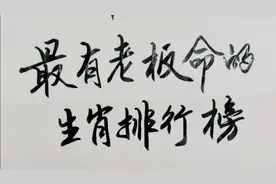 最有老板命的
生肖排行榜